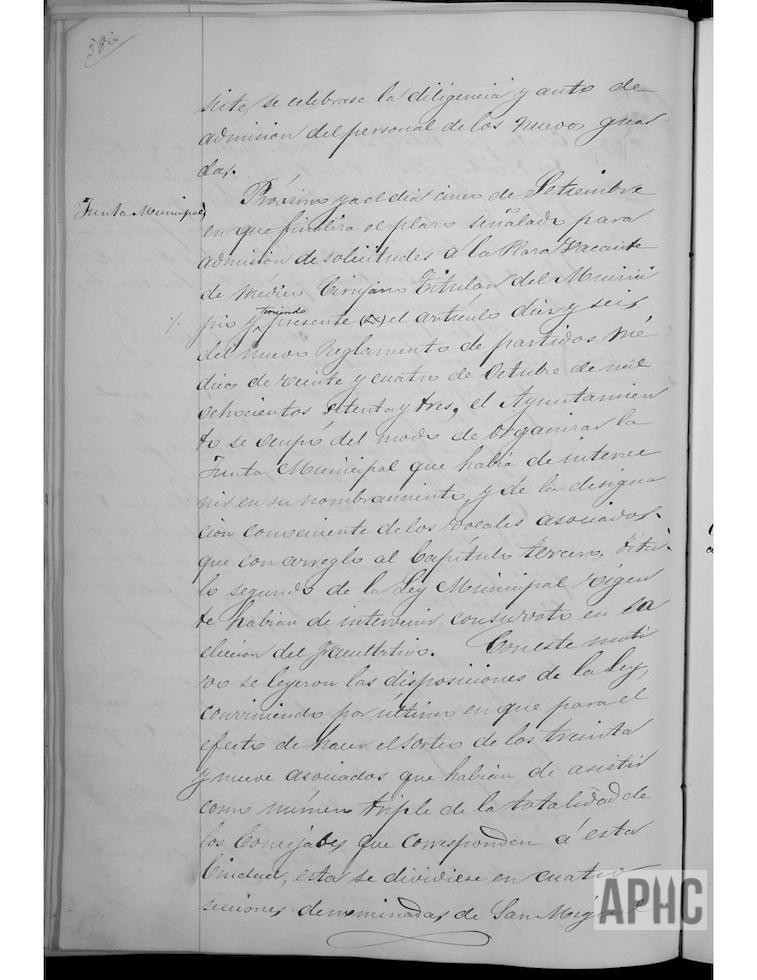 siete, se celebrase la diligencia y auto de
admision del personal de los nuevos guar
das.
Junta Municipal
Próximo ya el dia cinco de Setiembre
en que finaliza el plazo señalado para
admision de solicitudes á la Plaza Vacante
de Médico Cirujano Titular del Munici
teniendo
pio y presente el artículo diez y seis
del nuevo Reglamento de partidos mé
dicos de veinte y cuatro de Octubre de mil
ochocientos setenta y tres, el Ayuntamien
to se ocupó del modo de organizar la
Junta Municipal que habia de interve
nir en su nombramiento, y de la designa
cion conveniente de los vocales asociados
que con arreglo al Capítulo tercero, títu-
lo segundo de la Ley Municipal vigen
te habian de intervenir con su voto en la
eleccion del facultativo. Con este moti
vo se leyeron las disposiciones de la Ley,
conviniendo por último en que para el
efecto de hacer el sorteo de los treinta
y nueve asociados que habian de asistir
como número triple de la totalidad de
los Concejales que corresponden á esta
Ciudad, esta se dividiese en cuatro
secciones denominadas de San Miguel
APHC